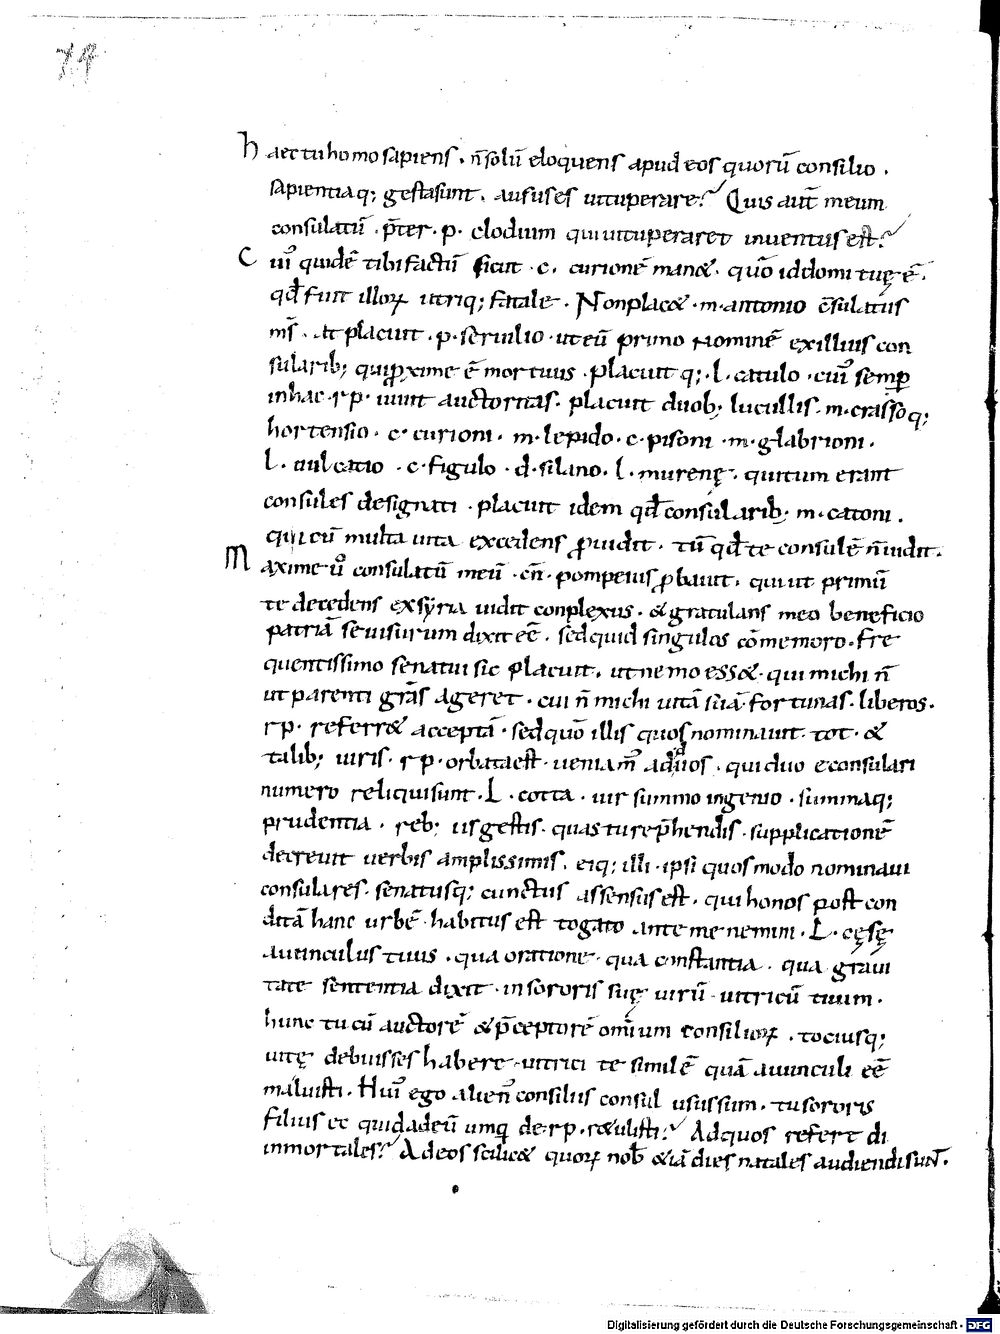 74
Haec tu homo sapiens . n̄ solū eloquens apud eos quorū consilio .
sapientiaq; gesta sunt . ausus es uituperare? Quis aut̄ meum
consulatū . p̄ter . p . clodium qui uituperaret inuentus est?
Cui᷒ quidē tibi fatū sicut . c . curionē man& . quō id domi tuę ē .
qđ fuit illoꝝ utriq; fatale . Non plac& . m . antonio cōsulatus
ms̄ . at placuit . p . seruilio . ut eū primo nominē ex illius con
sularib; qui ꝓxime ē mortuus . placuit q; . l . catulo . cui᷒ semꝑ
in hac . r p . uiuit auctoritas . placuit duob; lucullis . m . crasso q;
hortensio . c . curioni . m . lepido . c . pisoni . m . glabrioni .
l . uulcatio . c . figulo . d . silano . l . murenę . qui tum erant
consules designati . placuit idem qđ consularib; m . catoni .
qui cū multa uita excedens ꝓuidit . tū qđ te consulē n̄ uidit .
Maxime u᷒o consulatū meū . cn̄ . pompeius ꝓbauit . qui ut primū
te decedens ex syria uidit conplexus . & gratulans meo beneficio
patriā se uisurum dixit eē . sed quid singulos cōmemoro . Fre
quentissimo senatui sic placuit . ut nemo ess& . qui michi n̄
ut parenti gr̄as ageret . cui n̄ michi uitā suā . fortunas . liberos .
r p . referr& acceptā . sed quō illis quos nominauit . tot . &
talib; uiris . r p . orbata est . ueniam᷒ ad uiuos . qui duo e consulari
numero reliqui sunt . L . cotta . uir summo ingenio . summaq;
prudentia . reb; iis gestis . quas tu rep̄hendis . supplicationē
decreuit uerbis amplissimis . eiq; illi . ipsi quos modo nominaui
consulares . senatusq; cunctus assensus est . qui honos post con
ditā hanc urbē . habitus est togato ante me nemini . L . cęsę
auunculus tuus . qua oratione . qua constantia . qua graui
tate sententia dixit . in sororis suę uirū . uitricū tuum .
hunc tu cū auctorē & p̄ceptorē omīum consilioꝝ . tociusq;
uitę debuisses habere . uitrici te similē quā auunculi eē
maluisti . Hui᷒ ego alien᷒ consiliis consul usus sum . tu sororis
filius ec quid ad eū umq̄ de . r p . r&ulisti? Ad quos refert di
inmortales? Ad eos scilic& quoꝝ nob̄ & iā dies natales audiendi sunt .
Digitalisierung gefördert durch die Deutsche Forschungsgemeinschaft - DFG